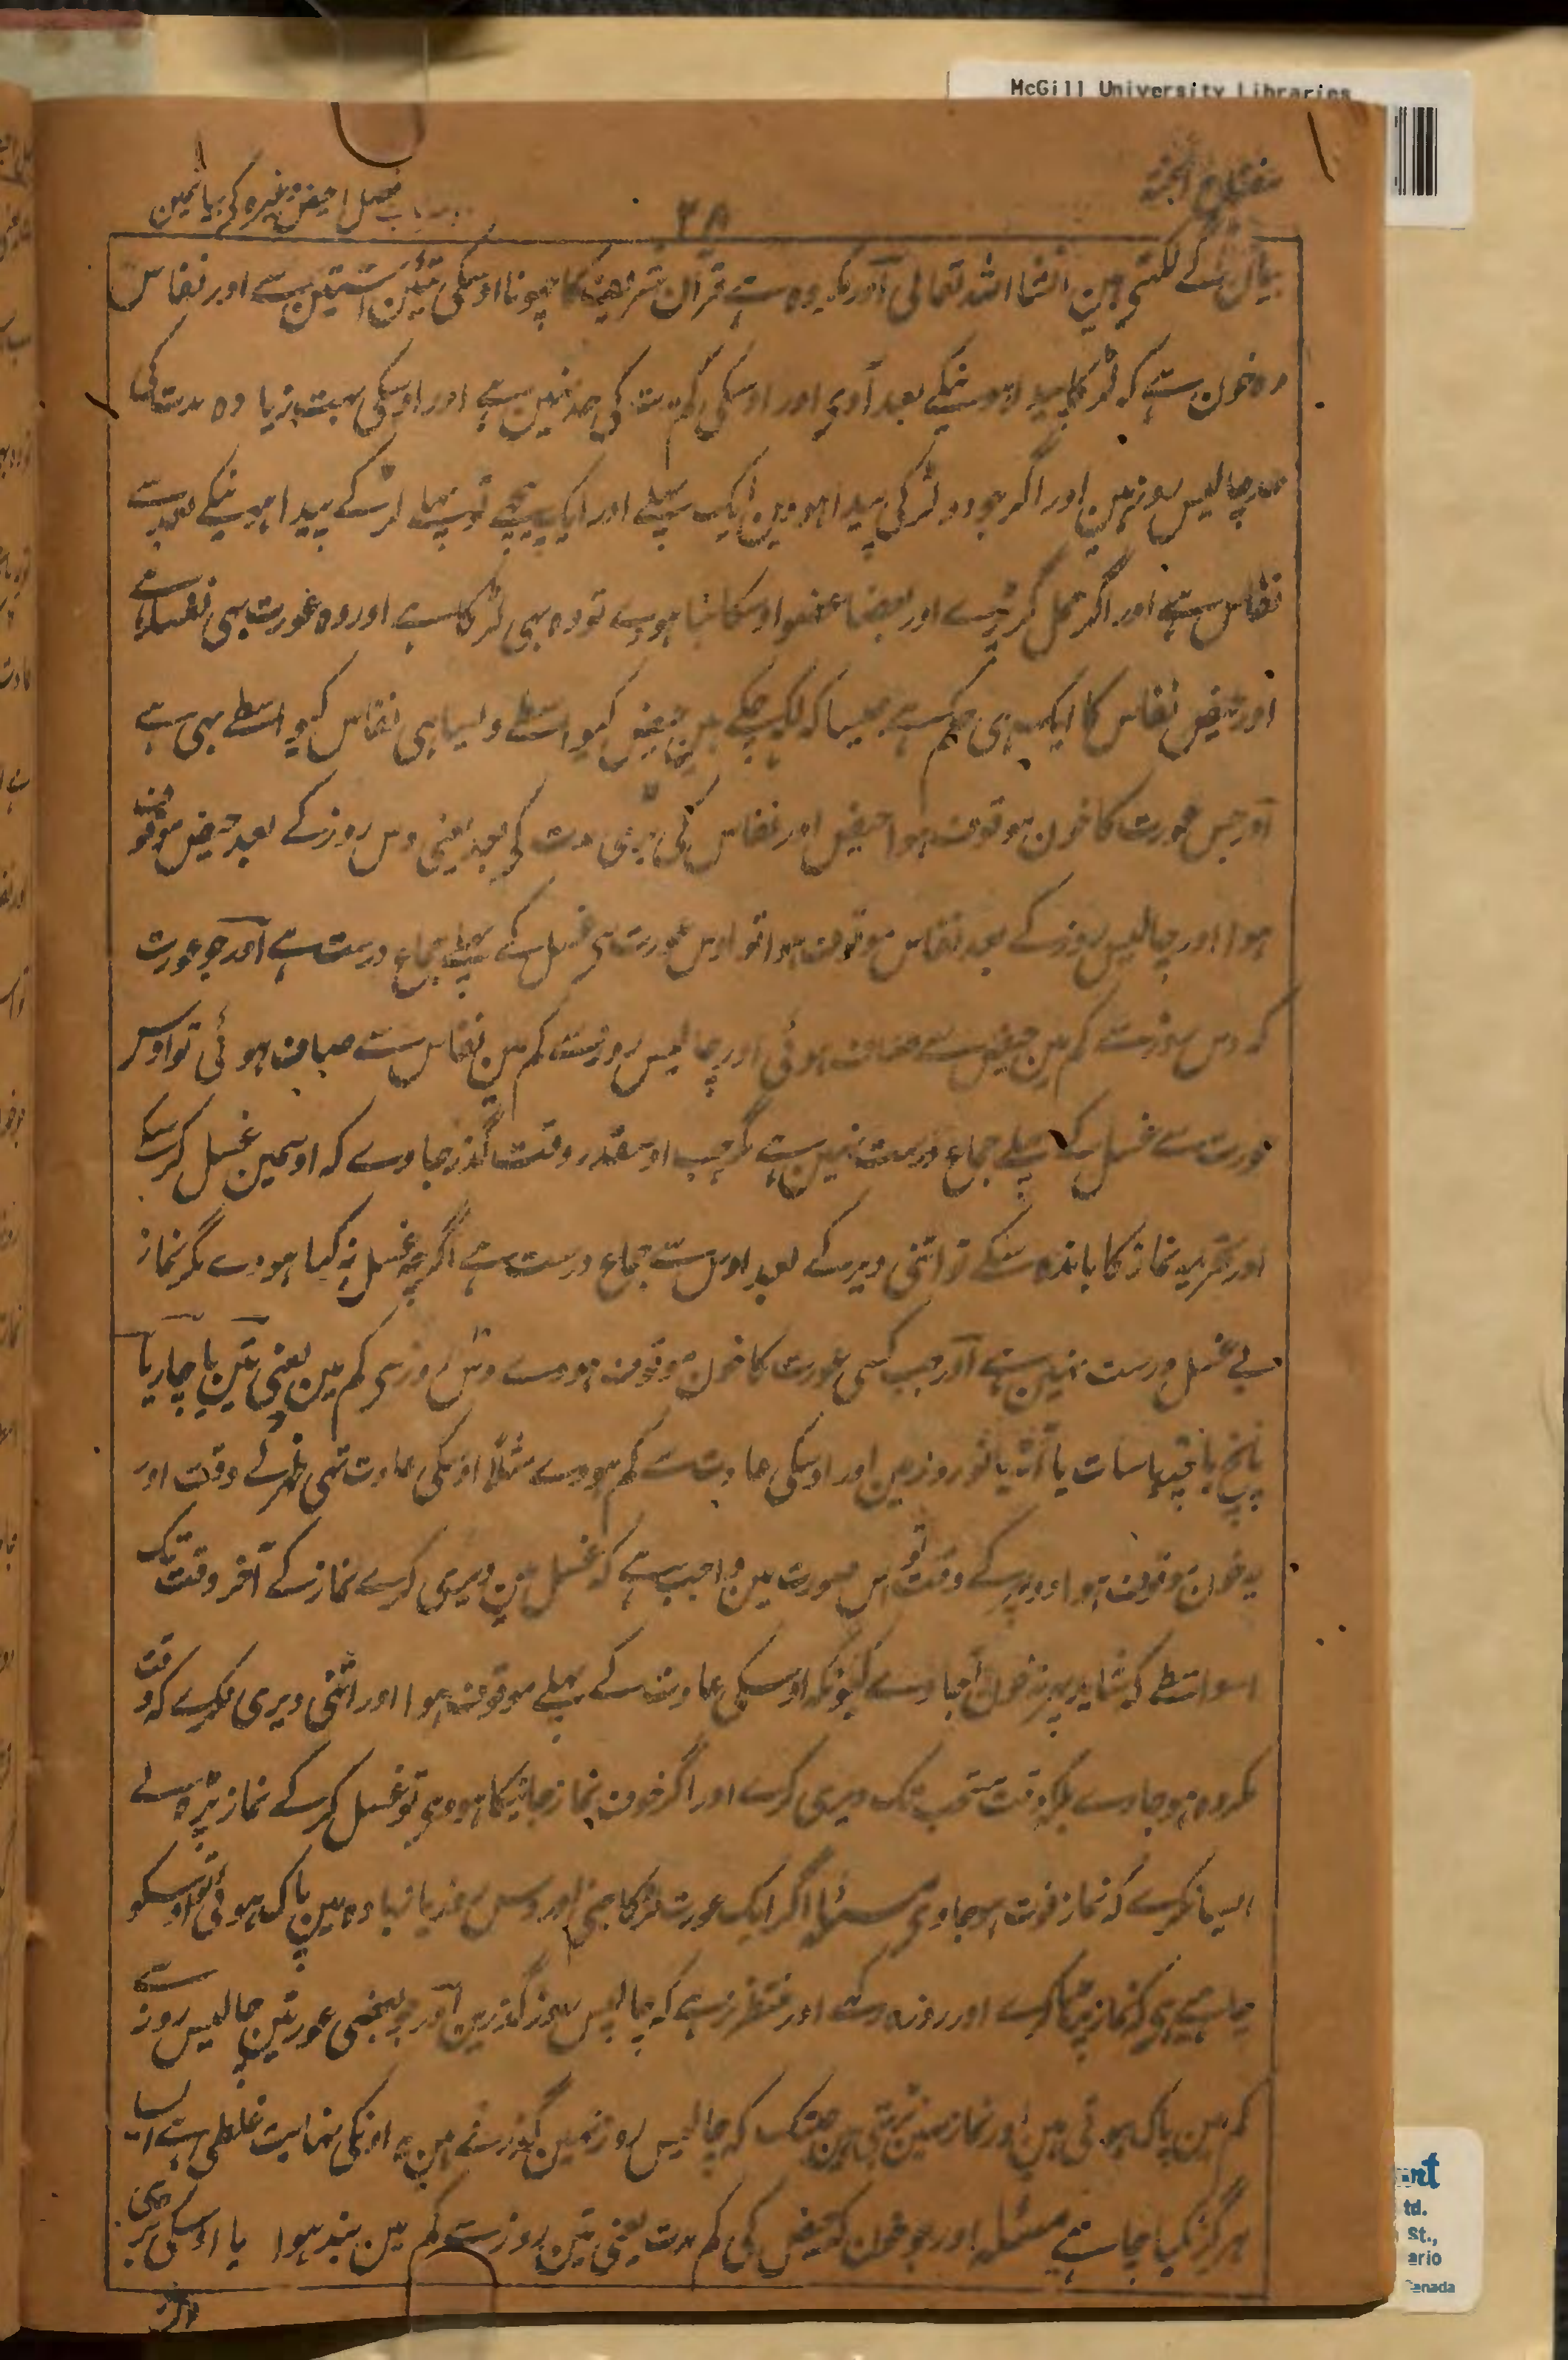 McGill University Libraries
مفتاح الجنۃ
۳۸
فصل حیض وغیرہ کے بیانمین
بیان کے لکھتی ہین انشاء اللہ تعالی اور مکروہ ہے قرآن شریف کا چھونا اوسکی تئین آستین سے اور نفاس
وہ خون ہے کہ لڑکا پیدا ہونیکے بعد آوی اور اوسکی کم مدت کی حد نہین ہے اور اوسکی بہت زیادہ مدت کی
حد چالیس روز ہین اور اگر جو دو لڑکی پیدا ہووین ایک پہلے اور ایک پیچھے تو پہلے لڑکے پیدا ہونیکے بعد سے
نفاس ہے اور اگر حمل گر پڑے اور بعضا عضو اوسکا بنا ہووے تو وہ بہی لڑکا ہے اور وہ عورت بہی نفسا ہے
اور حیض نفاس کا ایک ہی حکم ہے جیسا کہ لکھ چکے ہین حیض کیواسطے ویسا ہی نفاس کیواسطے بہی ہے
اور جس عورت کا خون موقوف ہوا حیض اور نفاس کی بڑی مدت کی بعد یعنی دس روز کے بعد حیض موقوف
ہوا اور چالیس روز کے بعد نفاس موقوف ہوا تو اوس عورت سی غسل کے پہلے جماع درست ہے اور جو عورت
کہ دس روز سے کم مین حیض سے صاف ہوئی اور چالیس روز سے کم مین نفاس سے صاف ہوئی تو اوس
عورت سے غسل کے پہلے جماع درست نہین ہے مگر جب اوسقدر وقت گذر جاوے کہ اوسمین غسل کر سکے
اور تحریمہ نماز کا باندہ سکے تو اتنی دیر کے بعد اوس سے جماع درست ہے اگرچہ غسل نہ کیا ہووے مگر نماز
بے غسل درست نہین ہے اور جب کسی عورت کا خون موقوف ہووے دس روز سی کم مین یعنی تین یا چار یا
پانچ یا چھہ یا سات یا آٹھ یا نو روز مین اور اوسکی عادت سے کم ہووے مثلًا اوسکی عادت تہی ظہر کے وقت اور
یہ خون موقوف ہوا دوپہر کے وقت تو اس صورت مین واجب ہے کہ غسل مین دیری کرے نماز کے آخر وقت تک
اسواسطے کہ شاید پہر خون آجاوے کیونکہ اوسکی عادت کے پہلے موقوف ہوا اور اتنی دیری نکرے کہ وقت
مکروہ ہو جاوے بلکہ وقت مستحب تک دیری کرے اور اگر خوف نماز جانیکا ہووی تو غسل کر کے نماز پڑہ لے
ایسا نکرے کہ نماز فوت ہو جاوی مسئلہ اگر ایک عورت لڑکا جنی اور دس روز یا زیادہ مین پاک ہوئی تو اوسکو
چاہیے کہ نماز پڑھا کرے اور روزہ رکھے اور منتظر نرہے کہ چالیس روز گذرین اور جو بعضی عورتین چالیس روز سے
کم مین پاک ہوتی ہین اور نماز نہین پڑہتی ہین جبتک کہ چالیس روز نہین گذرتے ہین یہ اونکی نہایت غلطی ہے ایسا
ہرگز نکیا چاہیے مسئلہ اور جو خون کہ حیض کی کم مدت یعنی تین روز سے کم مین بند ہوا یا اوسکی بڑی
td.
St.,
ario
Canada